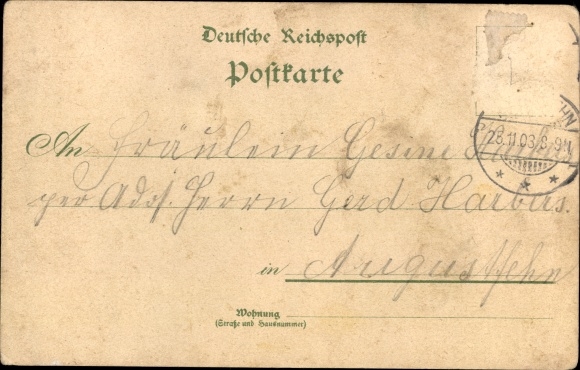 Deutsche Reichspost
Postkarte
HN
23.11.03. 8-9N
An Fräulein Gesine
per Adr. Herrn Gerd Harbers.
in Augustfehn
Wohnung
(Straße und Hausnummer)